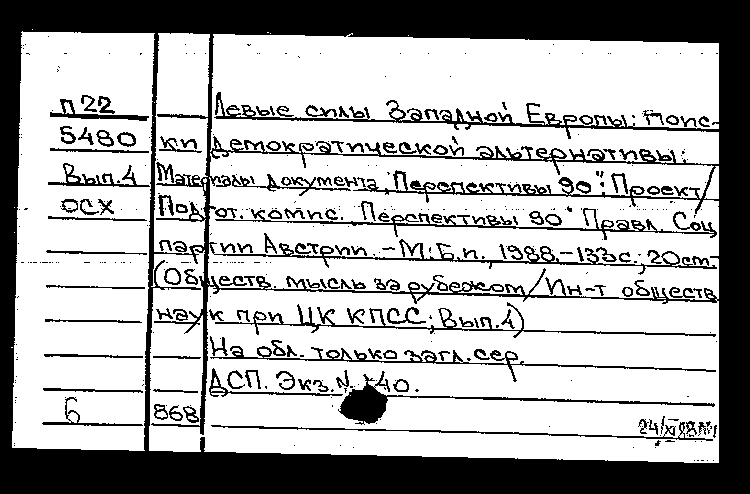 п22 Левые силы Западной Европы: Поис-
5480 ки демократической альтернативы:
Вып.4 Материалы документа "Перспективы 90": Проект/
ОСХ Подгот. комис. "Перспективы 90" Правл. Соц
партии Австрии. -М.: Б.и., 1988.-133с.; 20см.-
(Обществ. мысль за рубежом/Ин-т обществ
наук при ЦК КПСС; Вып.4)
На обл. только загл. сер.
ДСП. Экз.N 140.
6 868
24/XI 88